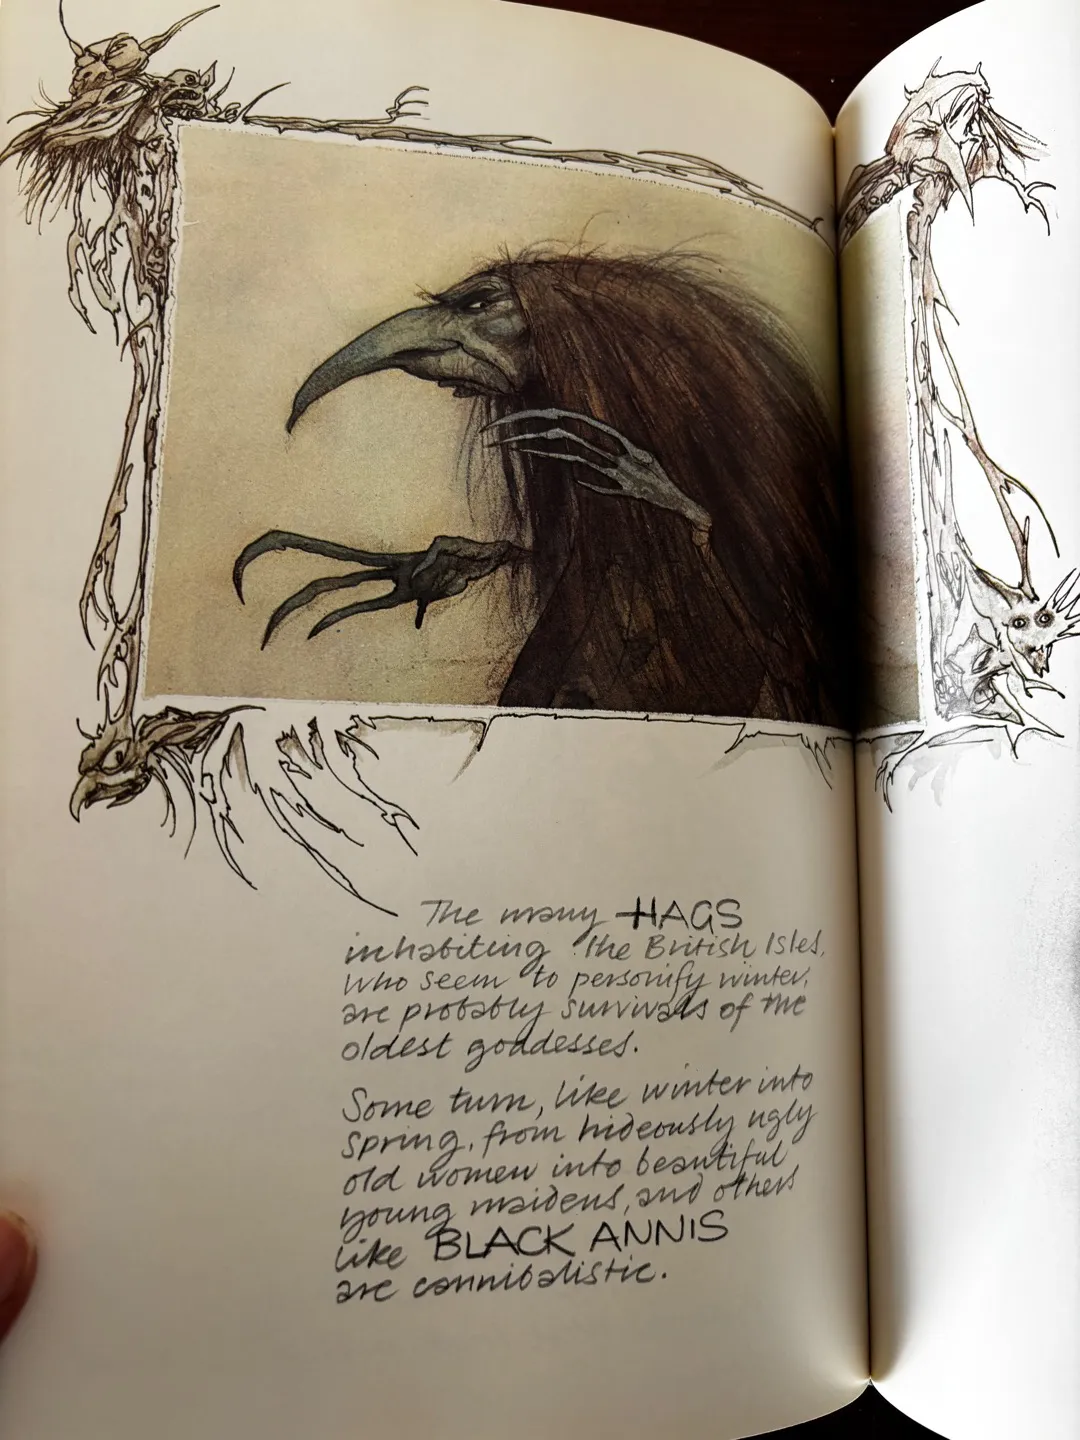 The many HAGS
inhabiting the British Isles,
who seem to personify winter,
are probably survivals of the
oldest goddesses.
Some turn, like winter into
spring, from hideously ugly
old women into beautiful
young maidens, and others
like BLACK ANNIS
are cannibalistic.